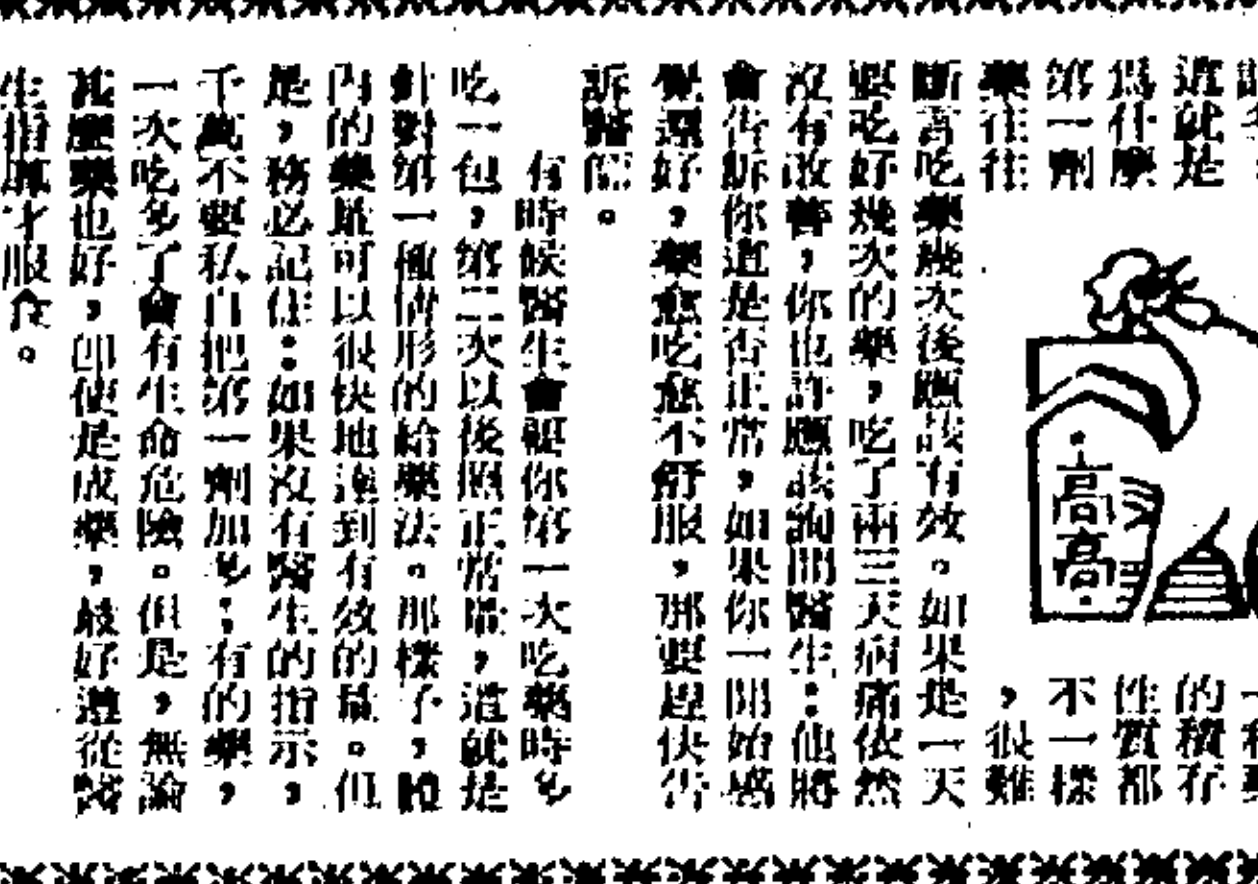 這就是
爲什麽
第一劑
藥往往
高高
的積存
性質都
不一樣
，很難
斷言吃藥幾次後應該有效。如果是一天
要吃好幾次的藥，吃了兩三天病痛依然
沒有改善，你也許應該詢問醫生：他將
會告訴你這是否正常，如果你一開始感
覺還好，藥愈吃愈不舒服，那要趕快告
訴醫院。
有時候醫生會讓你第一次吃藥時多
吃一包，第二次以後照正常量，這就是
針對第一種情形的給藥法。那樣子，體
內的藥量可以很快地達到有效的量。但
是，務必記住：如果沒有醫生的指示，
千萬不要私自把第一劑加多；有的藥，
一次吃多了會有生命危險。但是，無論
甚麼藥也好，即使是成藥，最好遵從醫
生指導才服食。